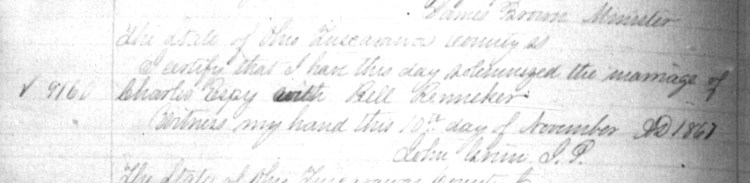 James Brown Minister
The State of Ohio Tuscarawas County ss
I certify that I have this day solemnized the marriage of
√ 9160 Charles Espy with Bell Renneker
Witness my hand this 10th day of November AD 1867
John J.P.
The State of Ohio Tuscarawas County